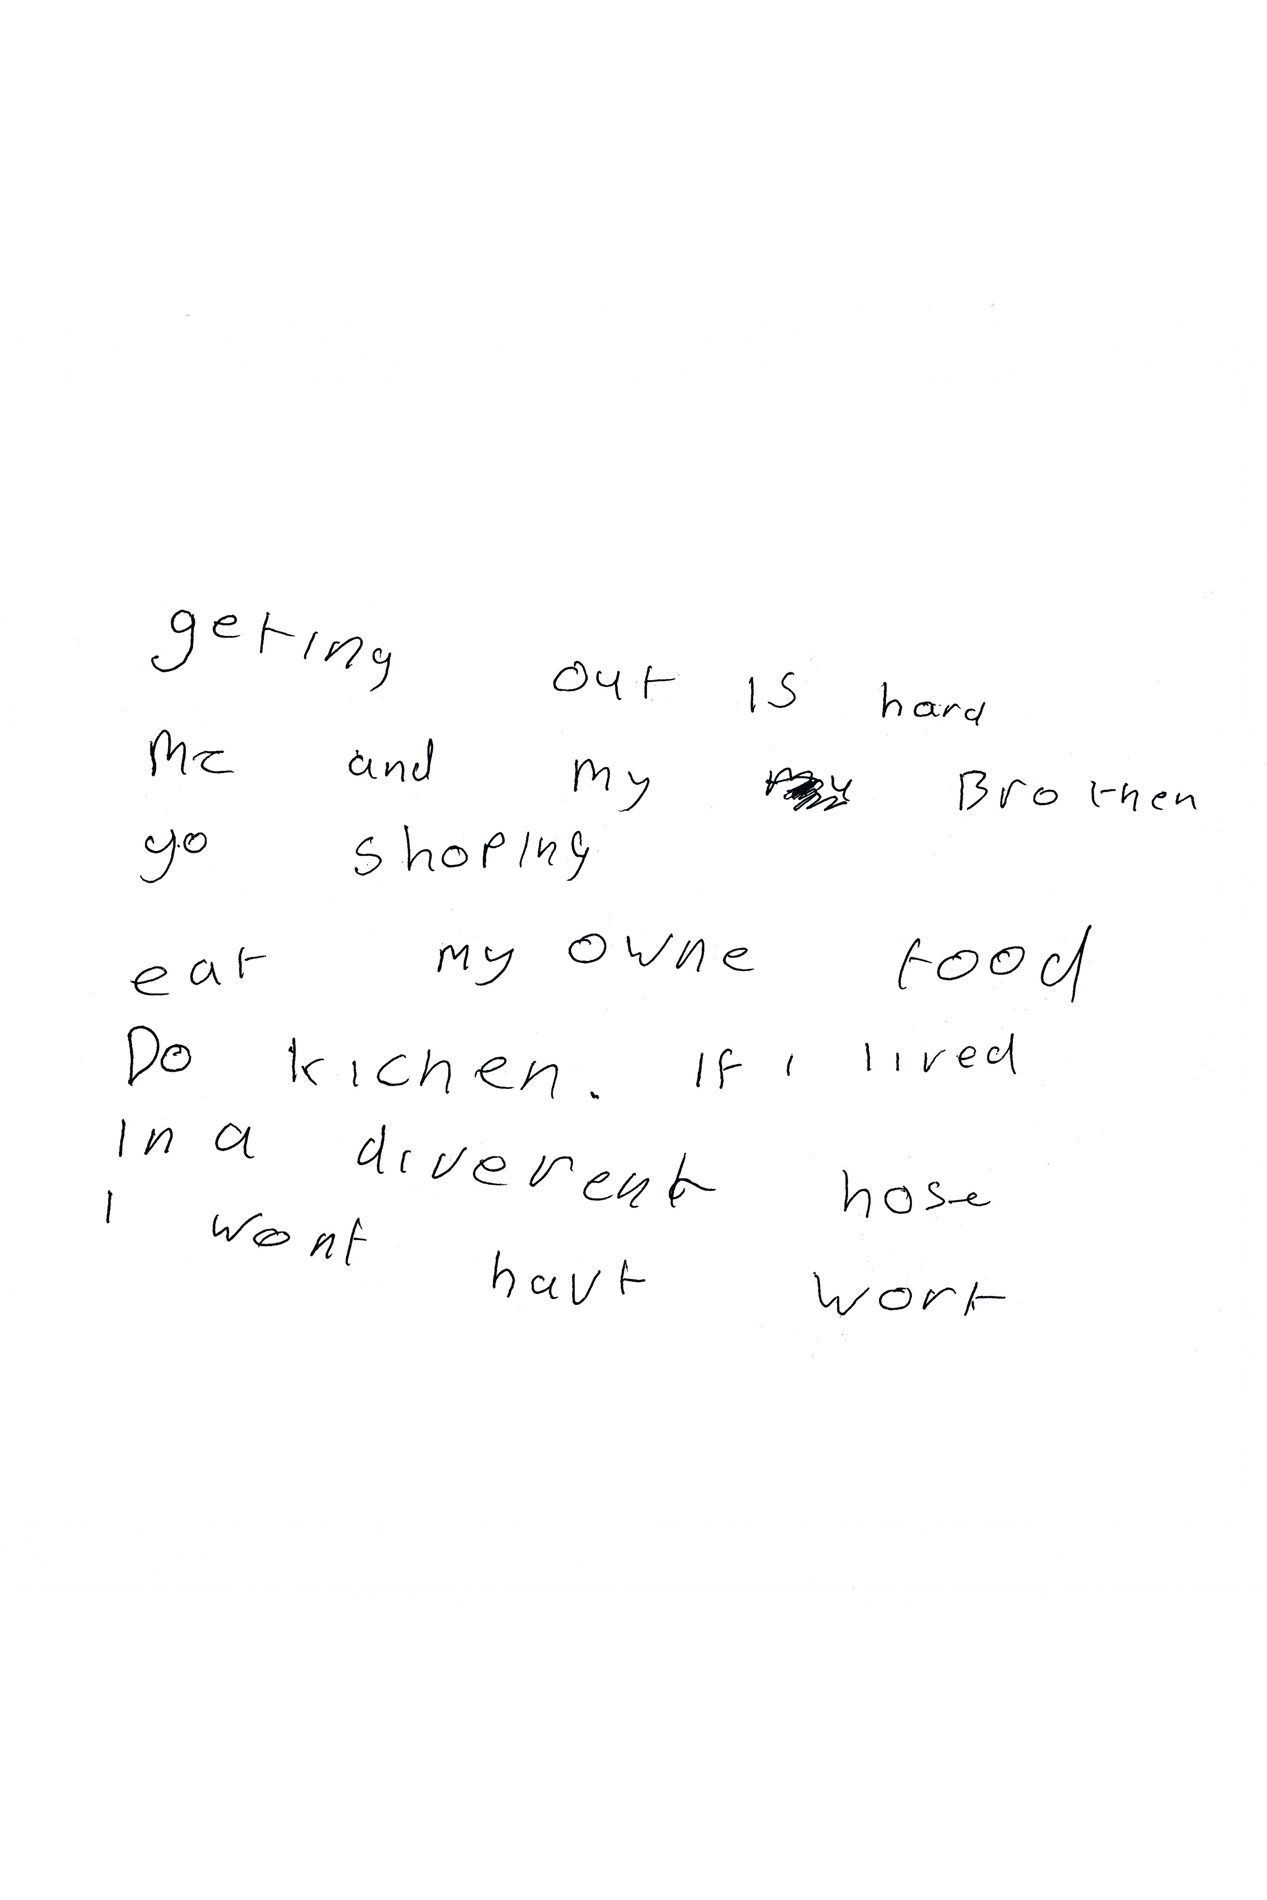 geting out is hard
Me and my Brother
go shoping
eat my owne food
Do kichen. If i lived
In a diverent hose
I wont havt work